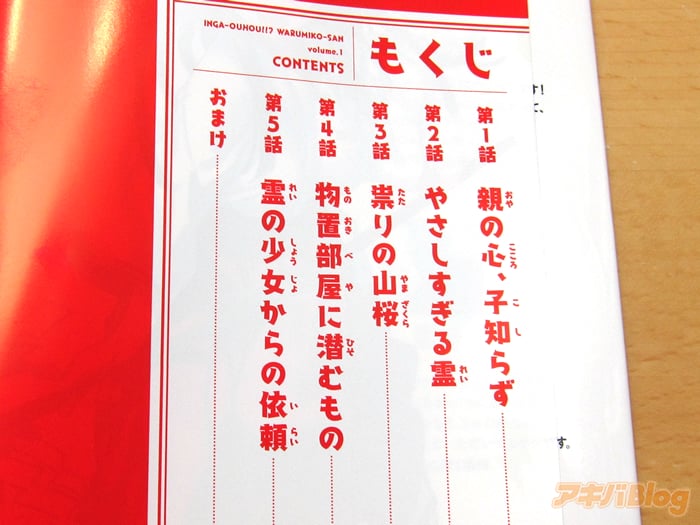 INGA-OUHOU!!? WARUMIKO-SAN
volume.1
CONTENTS
もくじ
第1話 親の心、子知らず
おや こころ こ し
第2話 やさしすぎる霊
れい
第3話 祟りの山桜
たた やま ざくら
第4話 物置部屋に潜むもの
もの おき べ や ひそ
第5話 霊の少女からの依頼
れい しょう じょ い らい
おまけ
す!
て、
す。
アキバBlog